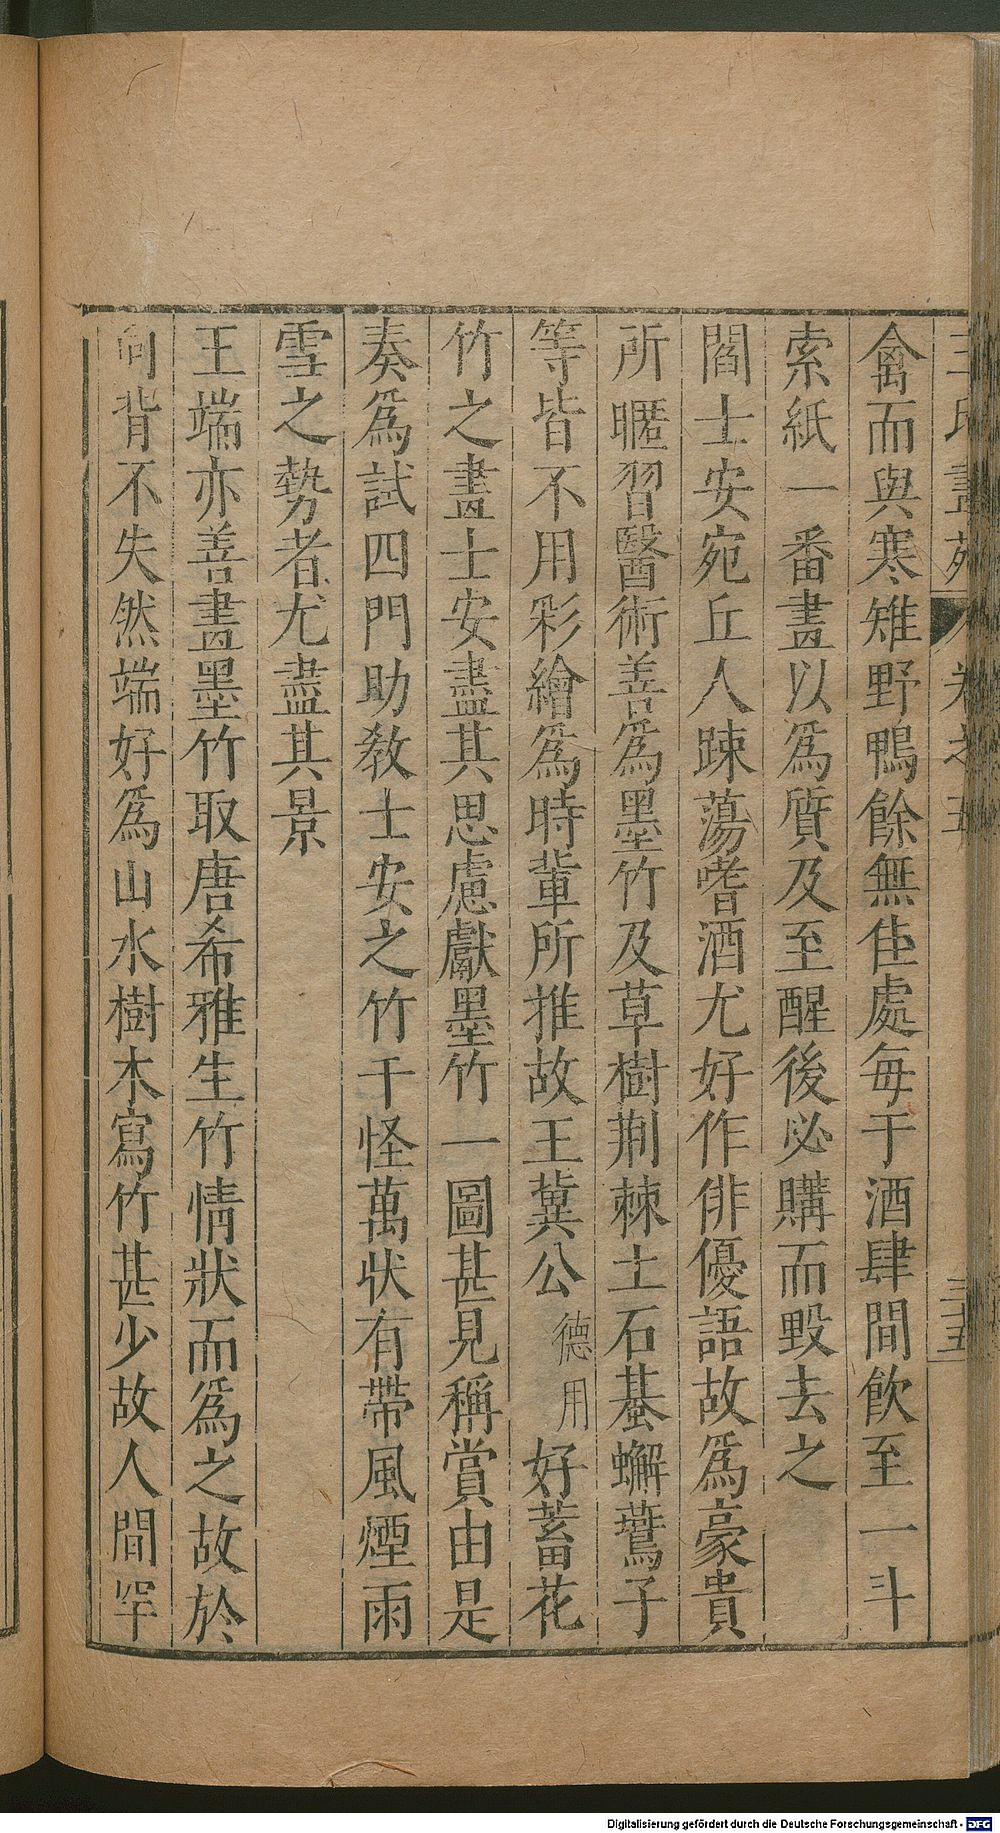 王氏畫苑 卷之五 三十五
禽而與寒雉野鴨餘無佳處每于酒肆間飲至一斗
索紙一番畫以為質及至醒後必購而毀去之
閻士安宛丘人踈蕩嗜酒尤好作俳優語故爲豪貴
所暱習醫術善爲墨竹及草樹荆棘土石蟇蠏鷰子
等皆不用彩繪爲時輩所推故王冀公德用好蓄花
竹之畫士安盡其思慮獻墨竹一圖甚見稱賞由是
奏爲試四門助敎士安之竹千怪萬狀有帶風煙雨
雪之勢者尤盡其景
王端亦善畫墨竹取唐希雅生竹情狀而爲之故於
向背不失然端好爲山水樹木寫竹甚少故人間罕
Digitalisierung gefördert durch die Deutsche Forschungsgemeinschaft - DFG